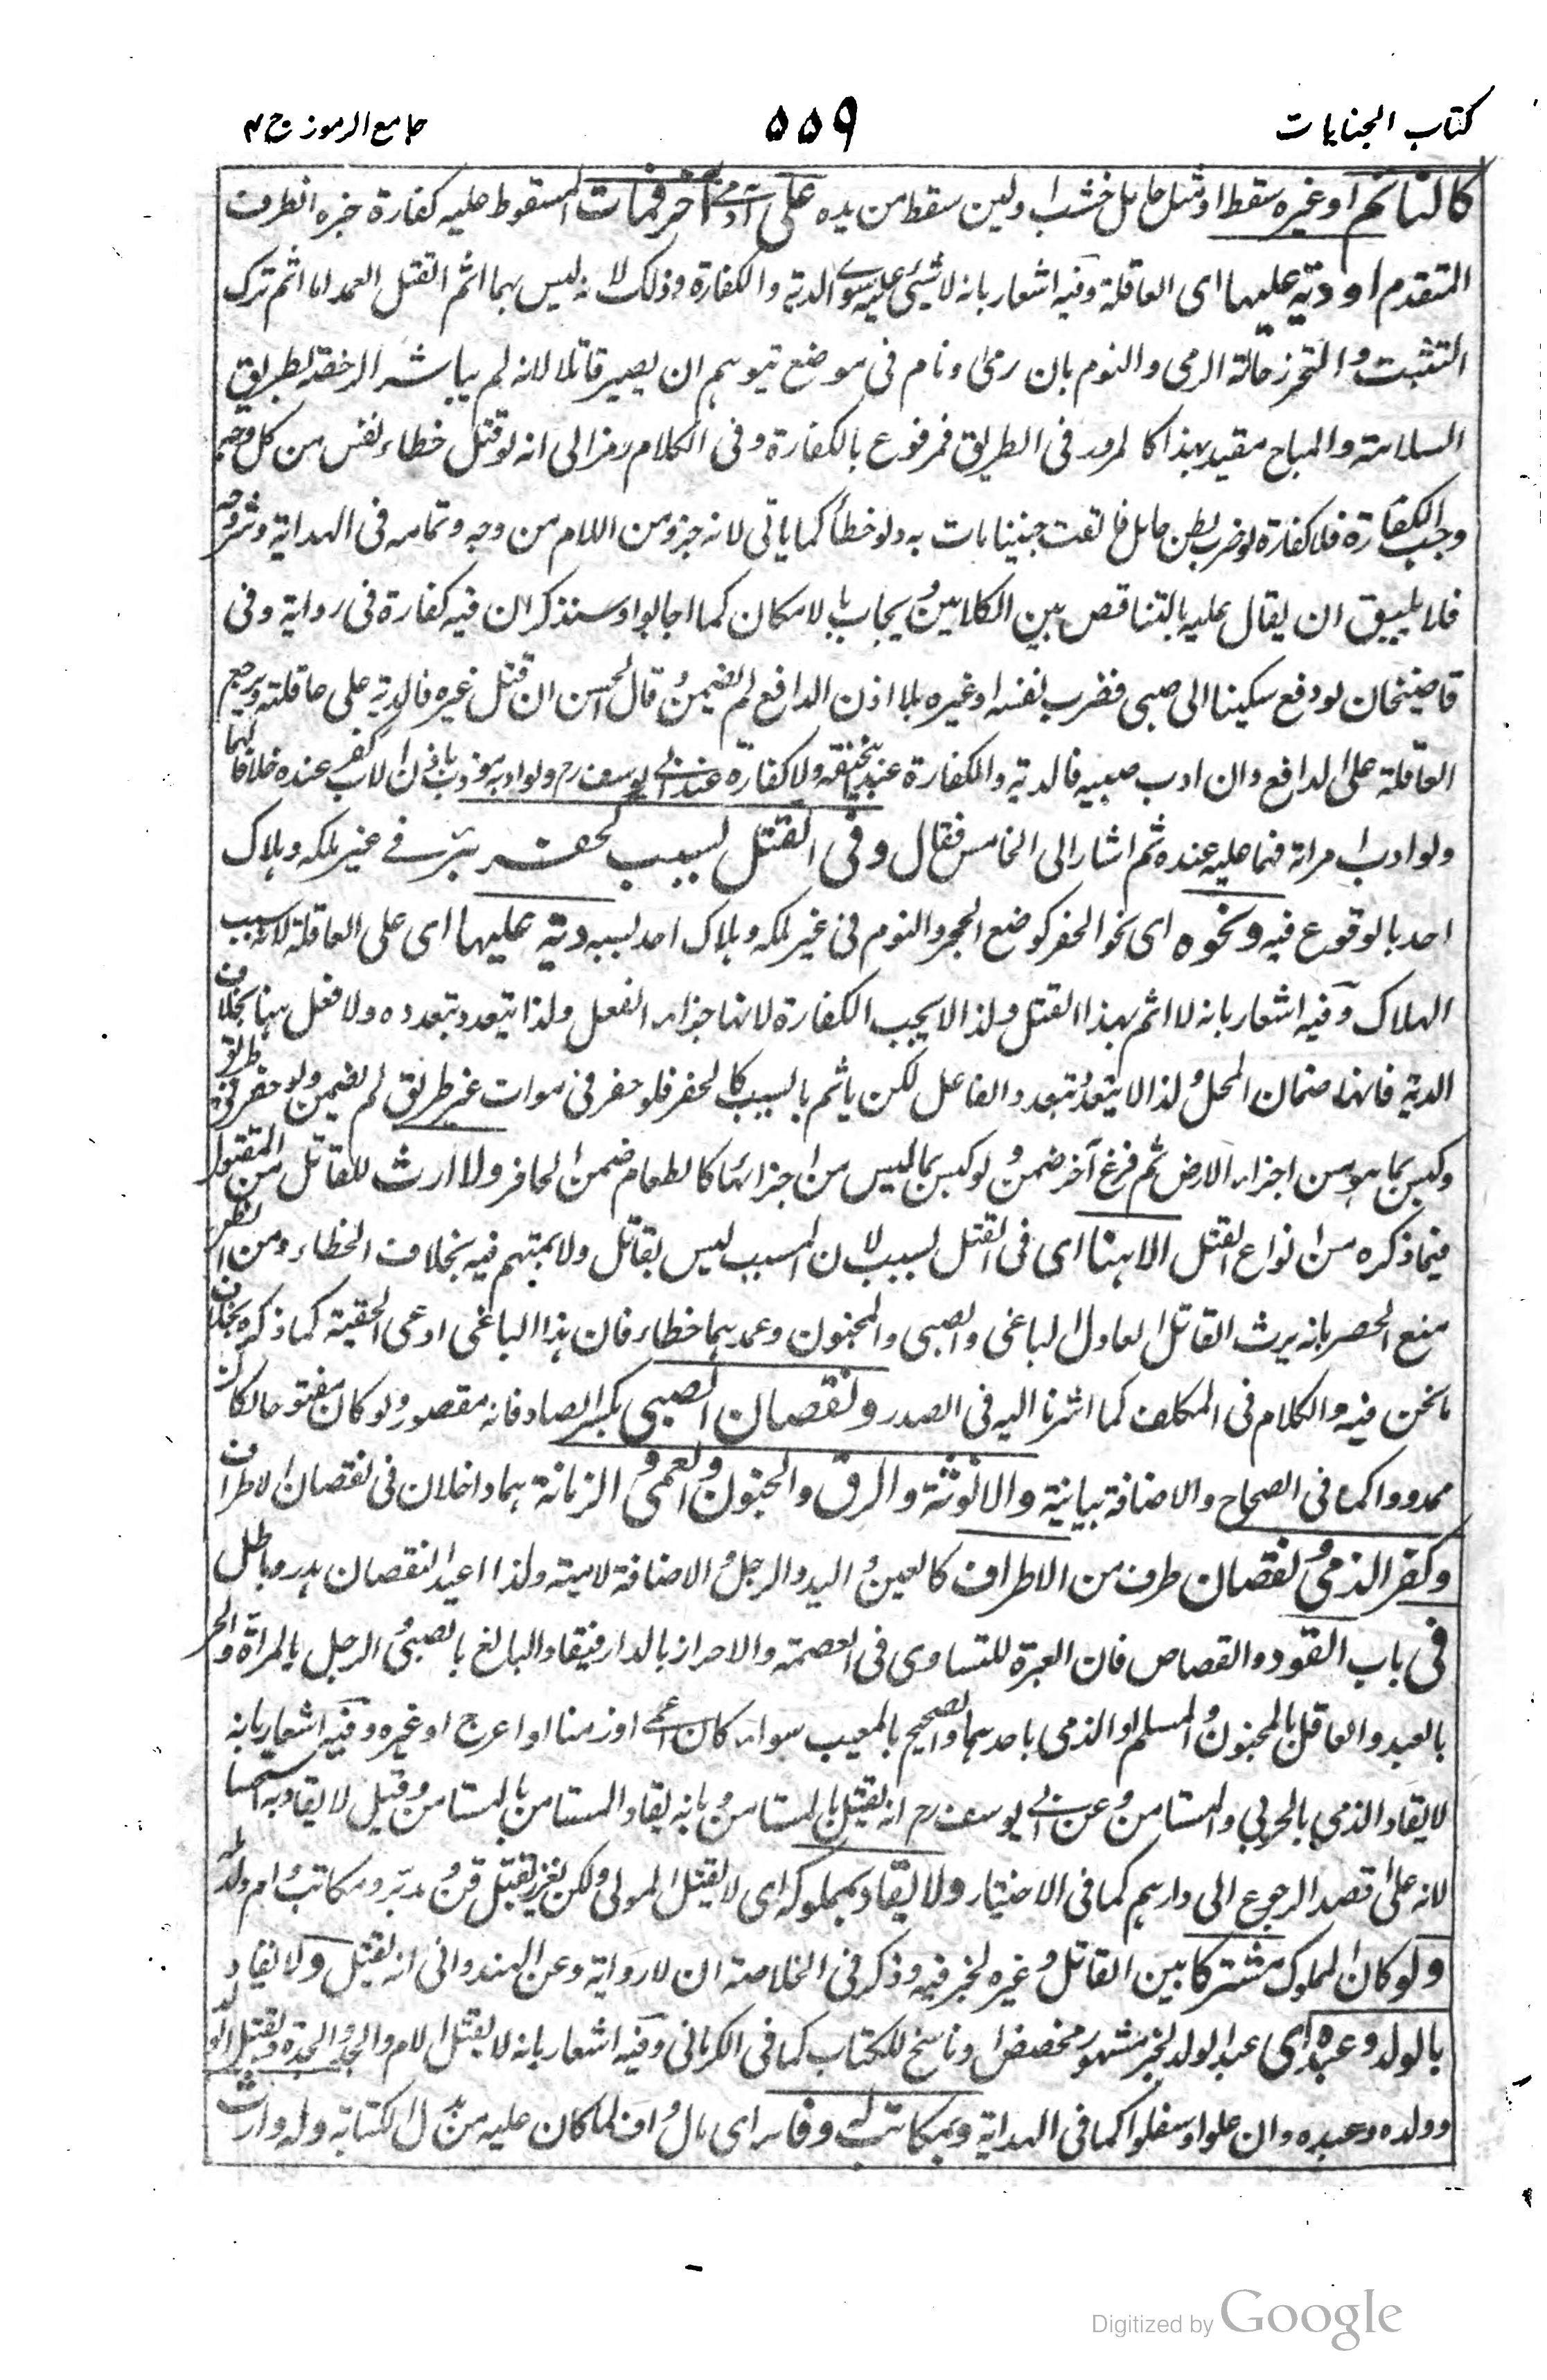 كتاب الجنايات
٥٥٩
جامع الرموز ج ٢
كالنائم او غيره سقط او مثل حامل خشب او لبن سقط من يده على آدمى آخر فمات المسقوط عليه كفارة خبره الظرف
المتقدم او دية عليها اى العاقلة وفيه اشعار بانه لا شيئ عليه سوى الدية والكفارة وذلك لانه ليس بهما اثم القتل العمد اما اثم ترك
التثبت والتحرز حالة الرمى والنوم بان رمى او نام فى موضع يتوهم ان يصير قاتلا لانه لم يباشر الرخصة بطريق
السلامة والمباح مقيد بهذا كالمرور فى الطريق فمرفوع بالكفارة وفى الكلام رمز الى انه لو قتل خطاء نفس من كل وجه
وجب الكفارة فلا كفارة لو ضرب بطن حامل فالقت جنينا مات به ولو خطأ كما ياتى لانه جزء من الام من وجه وتمامه فى الهداية وشروحه
فلا يليق ان يقال عليه بالتناقض بين الكلامين ويجاب بالامكان كما اجابوا وسنذكر ان فيه كفارة فى رواية وفى
قاضيخان لو دفع سكينا الى صبى فضرب نفسه او غيره بلا اذن الدافع لم يضمن وقال الحسن ان قتل غيره فالدية على عاقلته ويرجع
العاقلة على الدافع وان ادب صبيه فالدية والكفارة عند ابيحنيفة ولا كفارة عند ابى يوسف رح ولو ادبه مؤدب باذن الاب كفر عنده خلافا لهما
ولو ادب امراته فهما عليه عنده ثم اشار الى الخامس فقال وفى القتل بسبب كحفر بئر فى غير ملكه وهلاك
احد بالوقوع فيه ونحوه اى نحو الحفر كوضع الحجر والنوم فى غير ملكه وهلاك احد بسببه دية عليها اى على العاقلة لانه سبب
الهلاك وفيه اشعار بانه لا اثم بهذا القتل ولذا لا يجب الكفارة لانها جزاء الفعل ولذا يتعدد بتعدده ولا فعل هنا بخلاف
الدية فانها ضمان المحل ولذا لا يتعدد بتعدد الفاعل لكن ياثم بالسبب كالحفر فلو حفر فى موات غير طريق لم يضمن ولو حفر فى طريق
وكبس بما هو من اجزاء الارض ثم فرغ آخر ضمن ولو كبس بما ليس من اجزائها كالطعام ضمن الحافر ولا ارث للقاتل من المقتول
فيما ذكره من انواع القتل الا هنا اى فى القتل بسبب لان المسبب ليس بقاتل ولا يتهم فيه بخلاف الخطاء ومن الظن
منع الحصر بانه يرث القاتل العادل الباغى والصبى والمجنون وعمدهما خطاء فان هذا الباغى ادعى الحقية كما ذكره بخلاف
ما نحن فيه والكلام فى المكلف كما اشرنا اليه فى الصدر ونقصان الصبى بكسر الصاد فانه مقصور ولو كان مفتوحا لكان
ممدودا كما فى الصحاح والاضافة بيانية والانوثة والرق والجنون والعمى والزمانة هما داخلان فى نقصان الاطراف
وكفر الذمى ونقصان طرف من الاطراف كالعين واليد والرجل والاضافة لامية ولذا اعيد النقصان هدر وباطل
فى باب القود والقصاص فان العبرة للتساوى فى العصمة والاحراز بالدار فيقاد البالغ بالصبى والرجل بالمراة والحر
بالعبد والعاقل بالمجنون والمسلم او الذمى باحدهما والصحيح بالمعيب سواء كان اعمى او زمنا او اعرج او غيره وفيه اشعار بانه
لا يقاد الذمى بالحربى والمستامن وعن ابى يوسف رح انه يقتل بالمستامن وبانه يقاد المستامن بالمستامن وقيل لا يقاد به استحسانا
لانه على قصد الرجوع الى دارهم كما فى الاختيار ولا يقاد بمملوكه اى لا يقتل المولى ولكن يعزر بقتل قن ومدبر ومكاتب وام ولد له
ولو كان المملوك مشتركا بين القاتل وغيره لخبر فيه وذكر فى الخلاصة ان لا رواية وعن الهندوانى انه يقتل ولا يقاد
بالولد وعبده اى عبد الولد لخبر مشهور مخصص او ناسخ للكتاب كما فى الكرمانى وفيه اشعار بانه لا يقتل الام والجد والجدة بقتل الولد
وولده وعبده وان علوا او سفلوا كما فى الهداية وبمكاتب له وفاء اى مال واف لما كان عليه من بدل الكتابة وله وارث
Digitized by Google